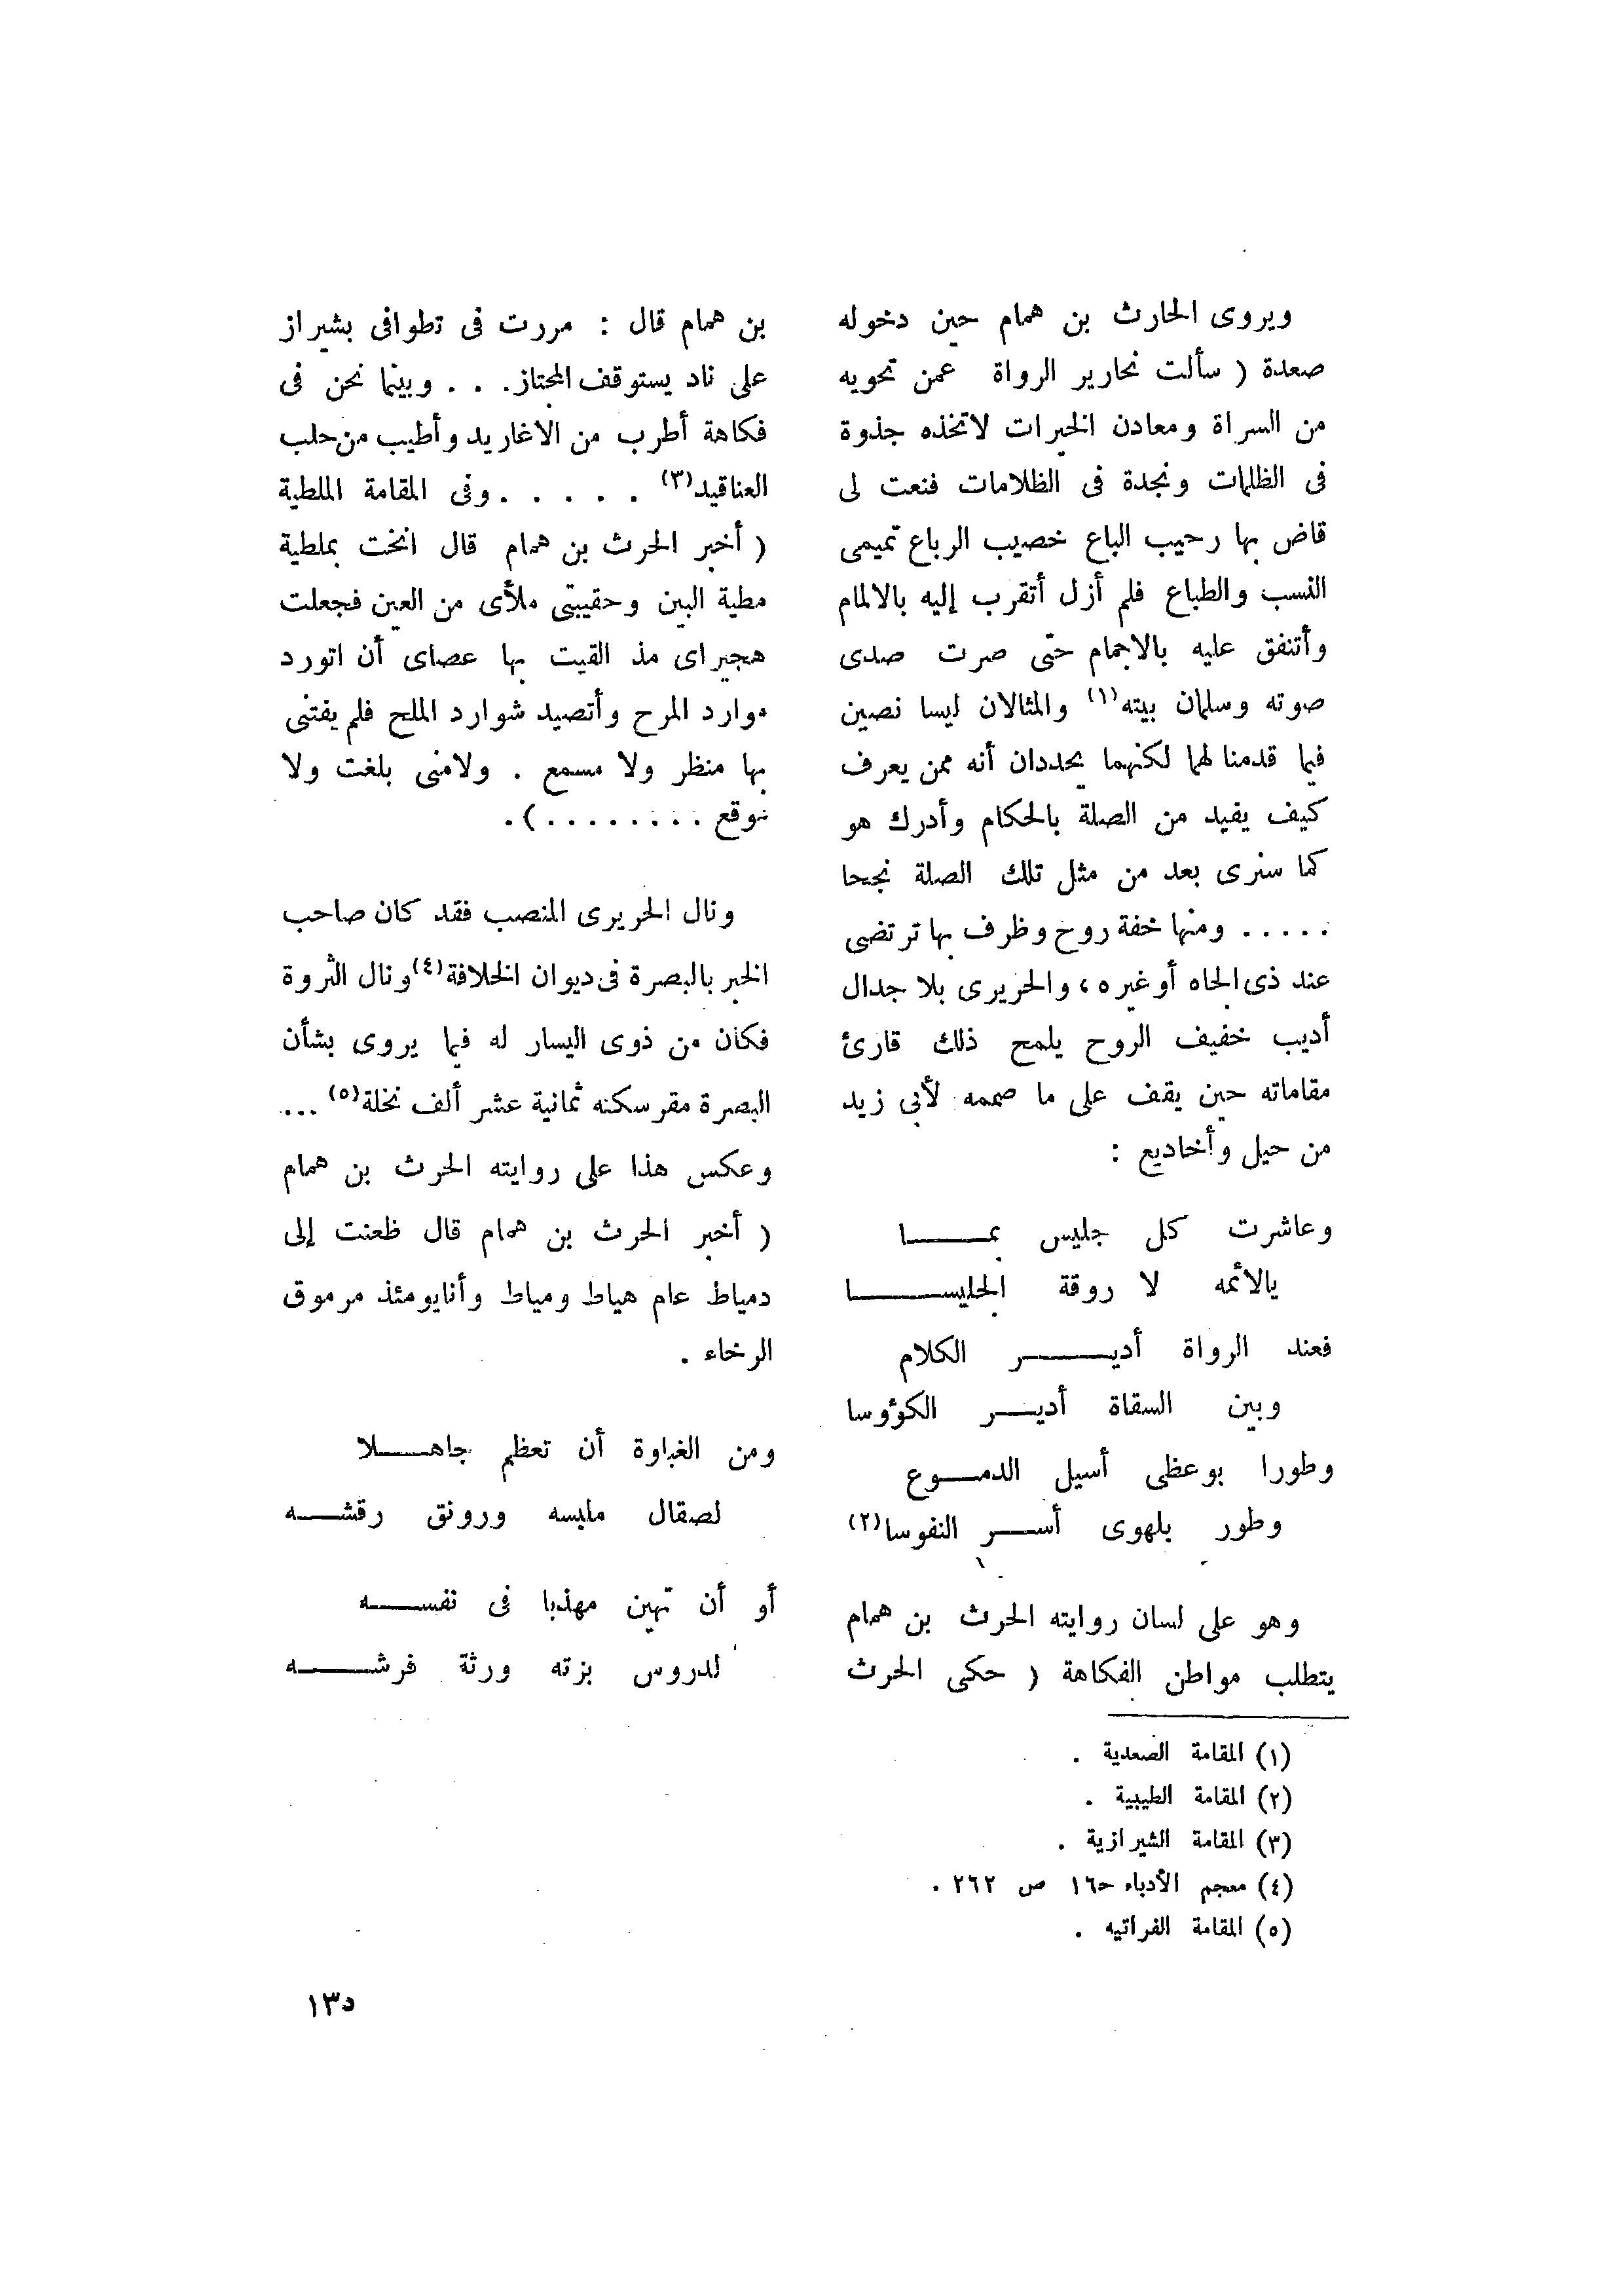 ويروى الحارث بن همام حين دخوله
صعدة ( سألت نحارير الرواة عمن تحويه
من السراة ومعادن الخيرات لاتخذه جذوة
فى الظلمات ونجدة فى الظلامات فنعت لى
قاض بها رحيب الباع خصيب الرباع تميمى
النسب والطباع فلم أزل أتقرب إليه بالالمام
وأتنفق عليه بالاجمام حتى صرت صدى
صوته وسلمان بيته(١) والمثالان ليسا نصين
فيما قدمنا لهما لكنهما يحددان أنه ممن يعرف
كيف يفيد من الصلة بالحكام وأدرك هو
كما سنرى بعد من مثل تلك الصلة نجحا
. . . . . ومنها خفة روح وظرف بها ترتضى
عند ذى الجاه أو غيره ، والحريرى بلا جدال
أديب خفيف الروح يلمح ذلك قارئ
مقاماته حين يقف على ما صممه لأبى زيد
من حيل وأخاديع :
وعاشرت كل جليس بمـــا
يالائمه لا روقة الجليســـا
فعند الرواة أديـــر الكلام
وبين السقاة أديــر الكؤوسا
وطورا بوعظى أسيل الدمــوع
وطور بلهوى أســر النفوسا(٢)
وهو على لسان روايته الحرث بن همام
يتطلب مواطن الفكاهة ( حكى الحرث
بن همام قال : مررت فى تطوافى بشيراز
على ناد يستوقف المجتاز . . . وبينما نحن فى
فكاهة أطرب من الاغاريد وأطيب من حلب
العناقيد(٣) . . . . . وفى المقامة الملطية
( أخبر الحرث بن همام قال انخت بملطية
مطية البين وحقيبتى ملأى من العين فجعلت
هجيراى مذ القيت بها عصاى أن اتورد
موارد المرح وأتصيد شوارد الملح فلم يفتنى
بها منظر ولا مسمع . ولامنى بلغت ولا
نوقع . . . . . . . . ) .
ونال الحريرى المنصب فقد كان صاحب
الخبر بالبصرة فى ديوان الخلافة(٤) ونال الثروة
فكان من ذوى اليسار له فيما يروى بشأن
البصرة مقر سكنه ثمانية عشر ألف نخلة(٥) ...
وعكس هذا على روايته الحرث بن همام
( أخبر الحرث بن همام قال ظعنت إلى
دمياط عام هياط ومياط وأنا يومئذ مرموق
الرخاء .
ومن الغباوة أن تعظم جاهــلا
لصقال ملبسه ورونق رقشــه
أو أن تهين مهذبا فى نفســه
لدروس بزته ورثة فرشـــه
(١) المقامة الصعدية .
(٢) المقامة الطيبية .
(٣) المقامة الشيرازية .
(٤) معجم الأدباء حـ١٦ ص ٢٦٢ .
(٥) المقامة الفراتيه .
١٣٥